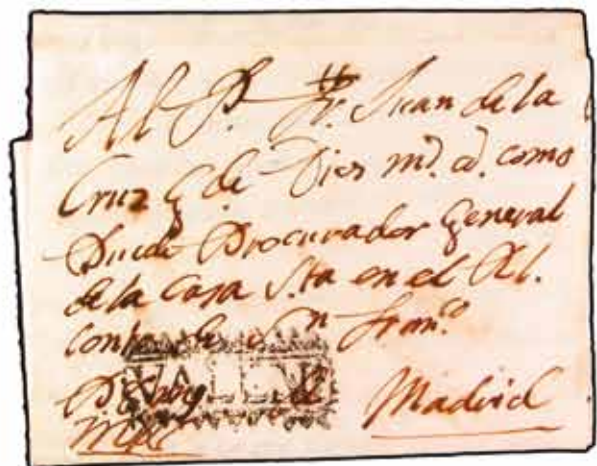 Al P. Fr. Juan de la
Cruz q de Dios m.s a.s como
Puede Procurador General
de la Casa S.ta en el Rl.
con.to de Sn Fran.co
VALEN
Madrid